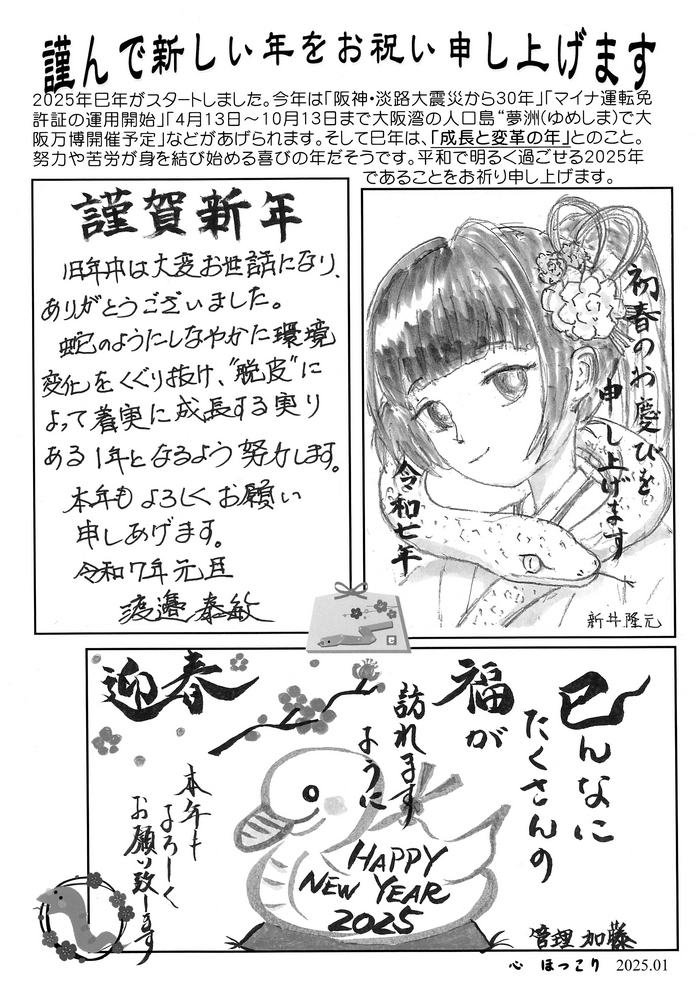 謹んで新しい年をお祝い申し上げます
2025年巳年がスタートしました。今年は「阪神・淡路大震災から30年」「マイナ運転免
許証の運用開始」「4月13日～10月13日まで大阪湾の人口島“夢洲(ゆめしま)で大
阪万博開催予定」などがあげられます。そして巳年は、「成長と変革の年」とのこと。
努力や苦労が身を結び始める喜びの年だそうです。平和で明るく過ごせる2025年
であることをお祈り申し上げます。
謹賀新年
旧年中は大変お世話になり、
ありがとうございました。
蛇のようにしなやかに環境
変化をくぐり抜け、“脱皮”に
よって着実に成長する実り
ある1年となるよう努力します。
本年もよろしくお願い
申しあげます。
令和7年元旦
渡邉泰敏
初春のお慶びを
申し上げます
令和七年
新井隆元
巳
巳んなに
たくさんの
福が
訪れます
ように
迎春
本年も
よろしく
お願い致します
HAPPY
NEW YEAR
2025
管理 加藤
心 ほっこり 2025.01